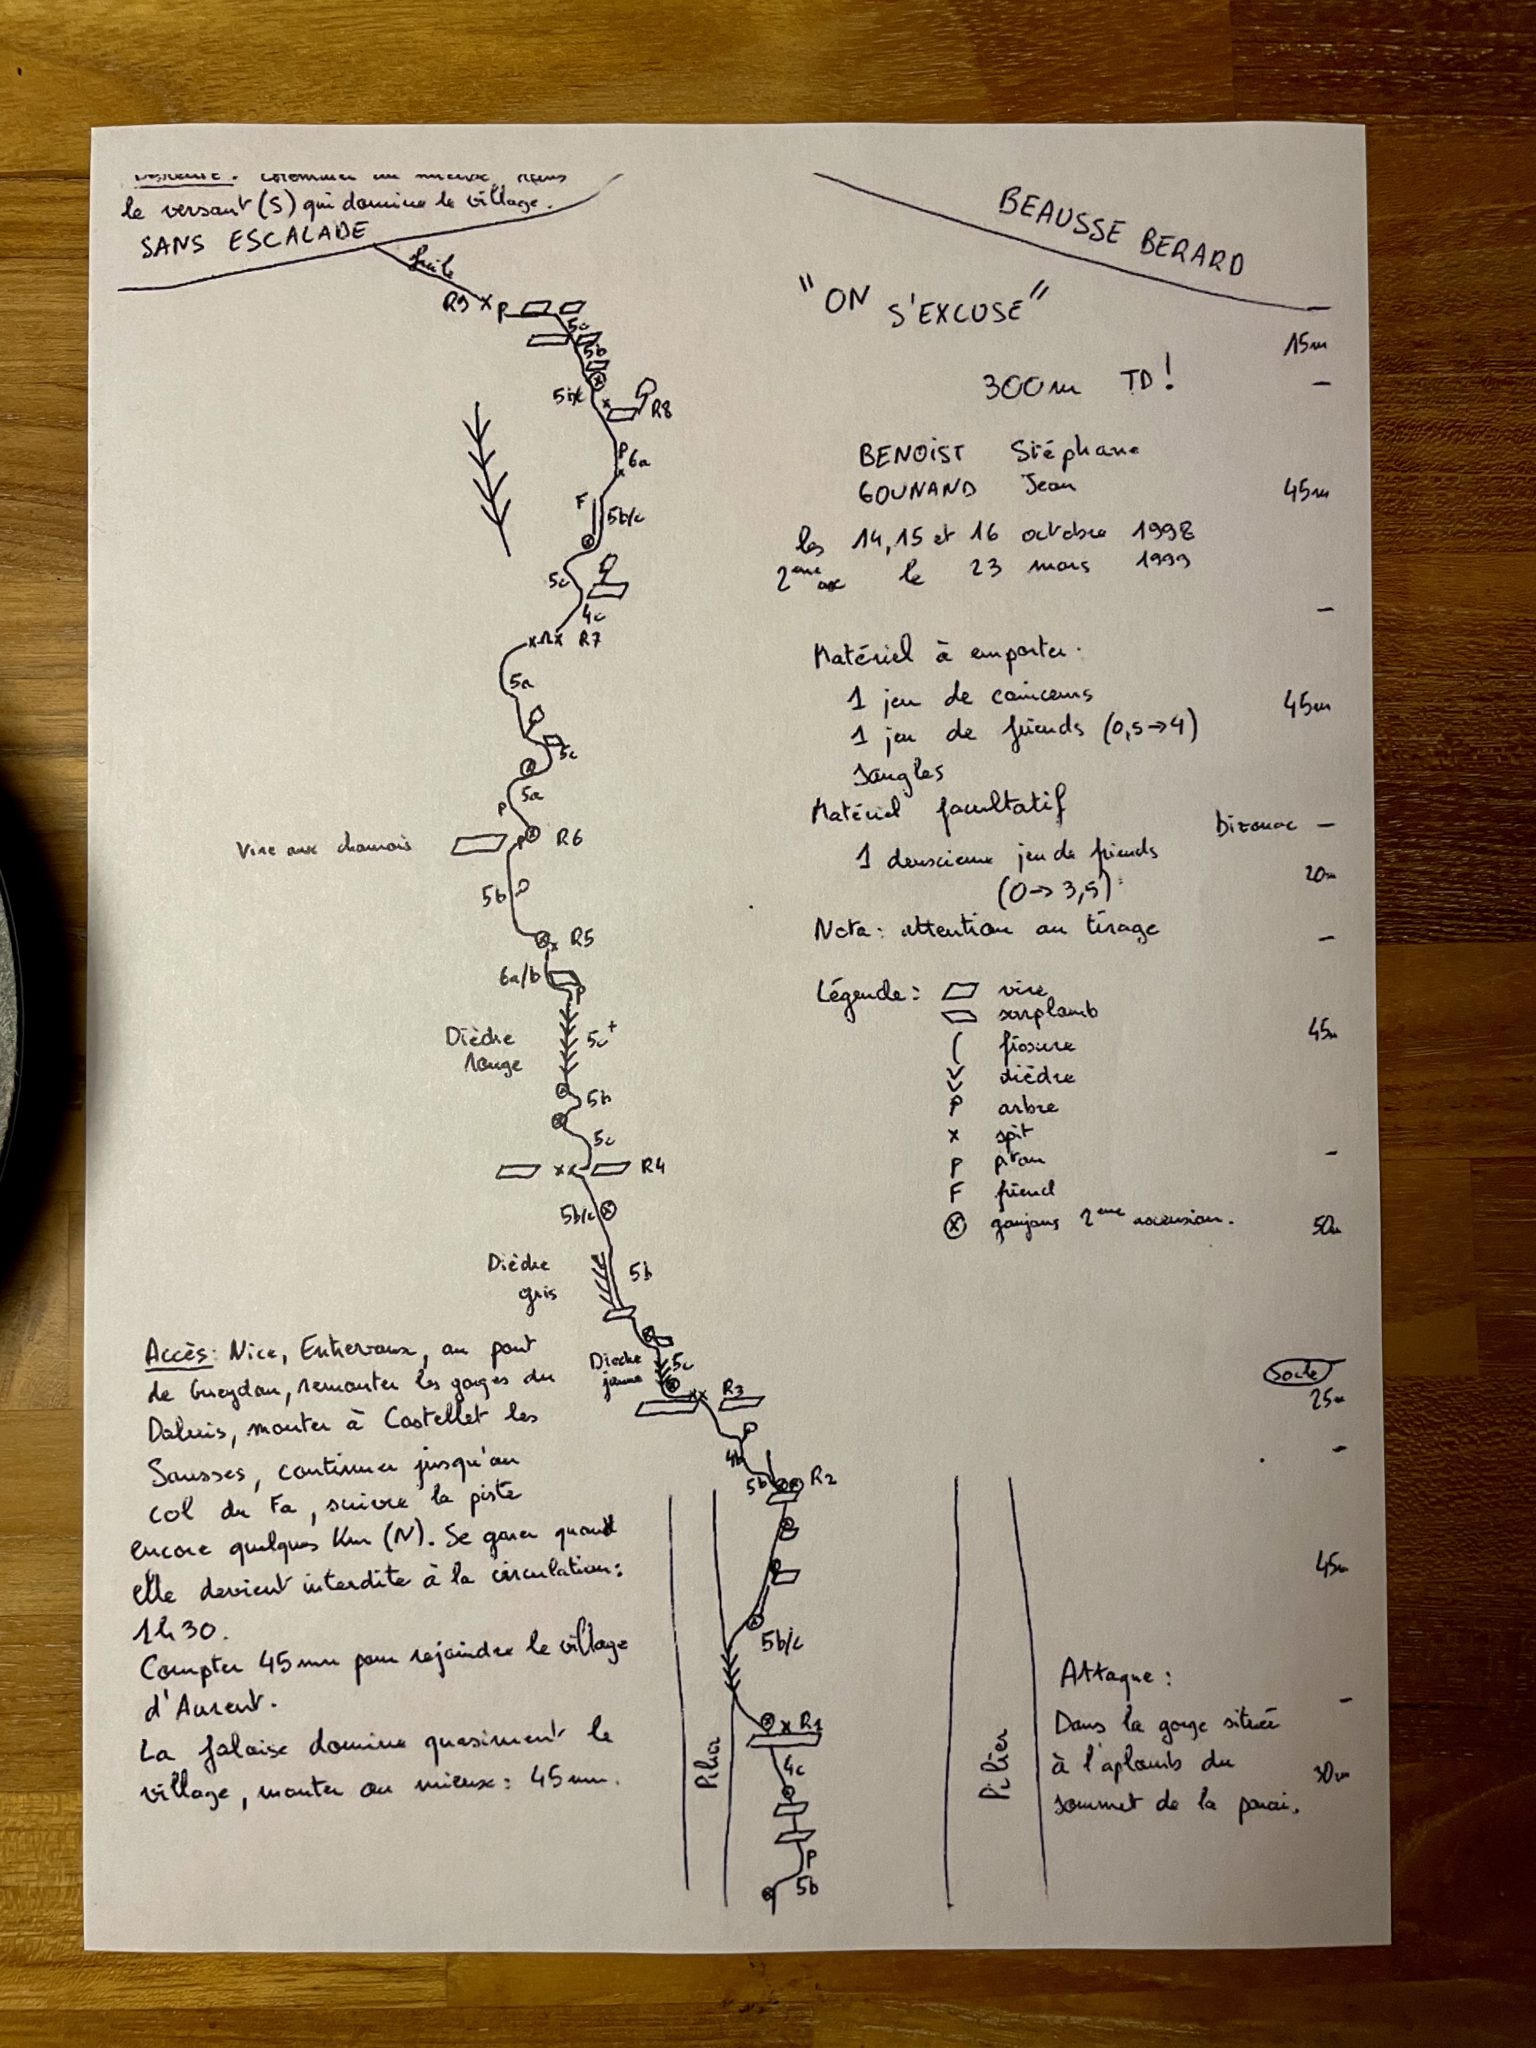 le versant (S) qui domine le village.
SANS ESCALADE
facile
R9 x P
5c
5b
5b/c
R8
P
6a
F
5b/c
5c
4c
R7
5a
5c
5a
P
Vire aux chamois
P
R6
5b
R5
6a/b
P
Dièdre
rouge
5c+
5b
5c
xx
R4
5b/c
Dièdre
gris
5b
Dièdre
jaune
5c
xx
R3
4b
5b
R2
5b/c
x R1
4c
P
5b
Pilier
Accès: Nice, Entrevaux, au pont
de Gueydan, remonter les gorges du
Daluis, monter à Castellet les
Sausses, continuer jusqu'au
col du Fa, suivre la piste
encore quelques Km (N). Se garer quand
elle devient interdite à la circulation:
1h30.
Compter 45mn pour rejoindre le village
d'Aurent.
La falaise domine quasiment le
village, monter au mieux: 45mn.
BEAUSSE BERARD
"ON S'EXCUSE"
300m TD!
BENOIST Stéphane
GOUNAND Jean
les 14, 15 et 16 octobre 1998
2eme le 23 mars 1999
Matériel à emporter.
1 jeu de coinceurs
1 jeu de friends (0,5→4)
sangles
Matériel facultatif
1 deuxieme jeu de friends
(0→3,5)
Nota: attention au tirage
Légende: vire
surplomb
fissure
dièdre
arbre
x spit
P piton
F friend
goujons 2eme ascension.
Pilier
Attaque:
Dans la gorge située
à l'aplomb du
sommet de la paroi.
15m
45m
45m
bivouac
20m
45m
50m
Socle
25m
45m
30m